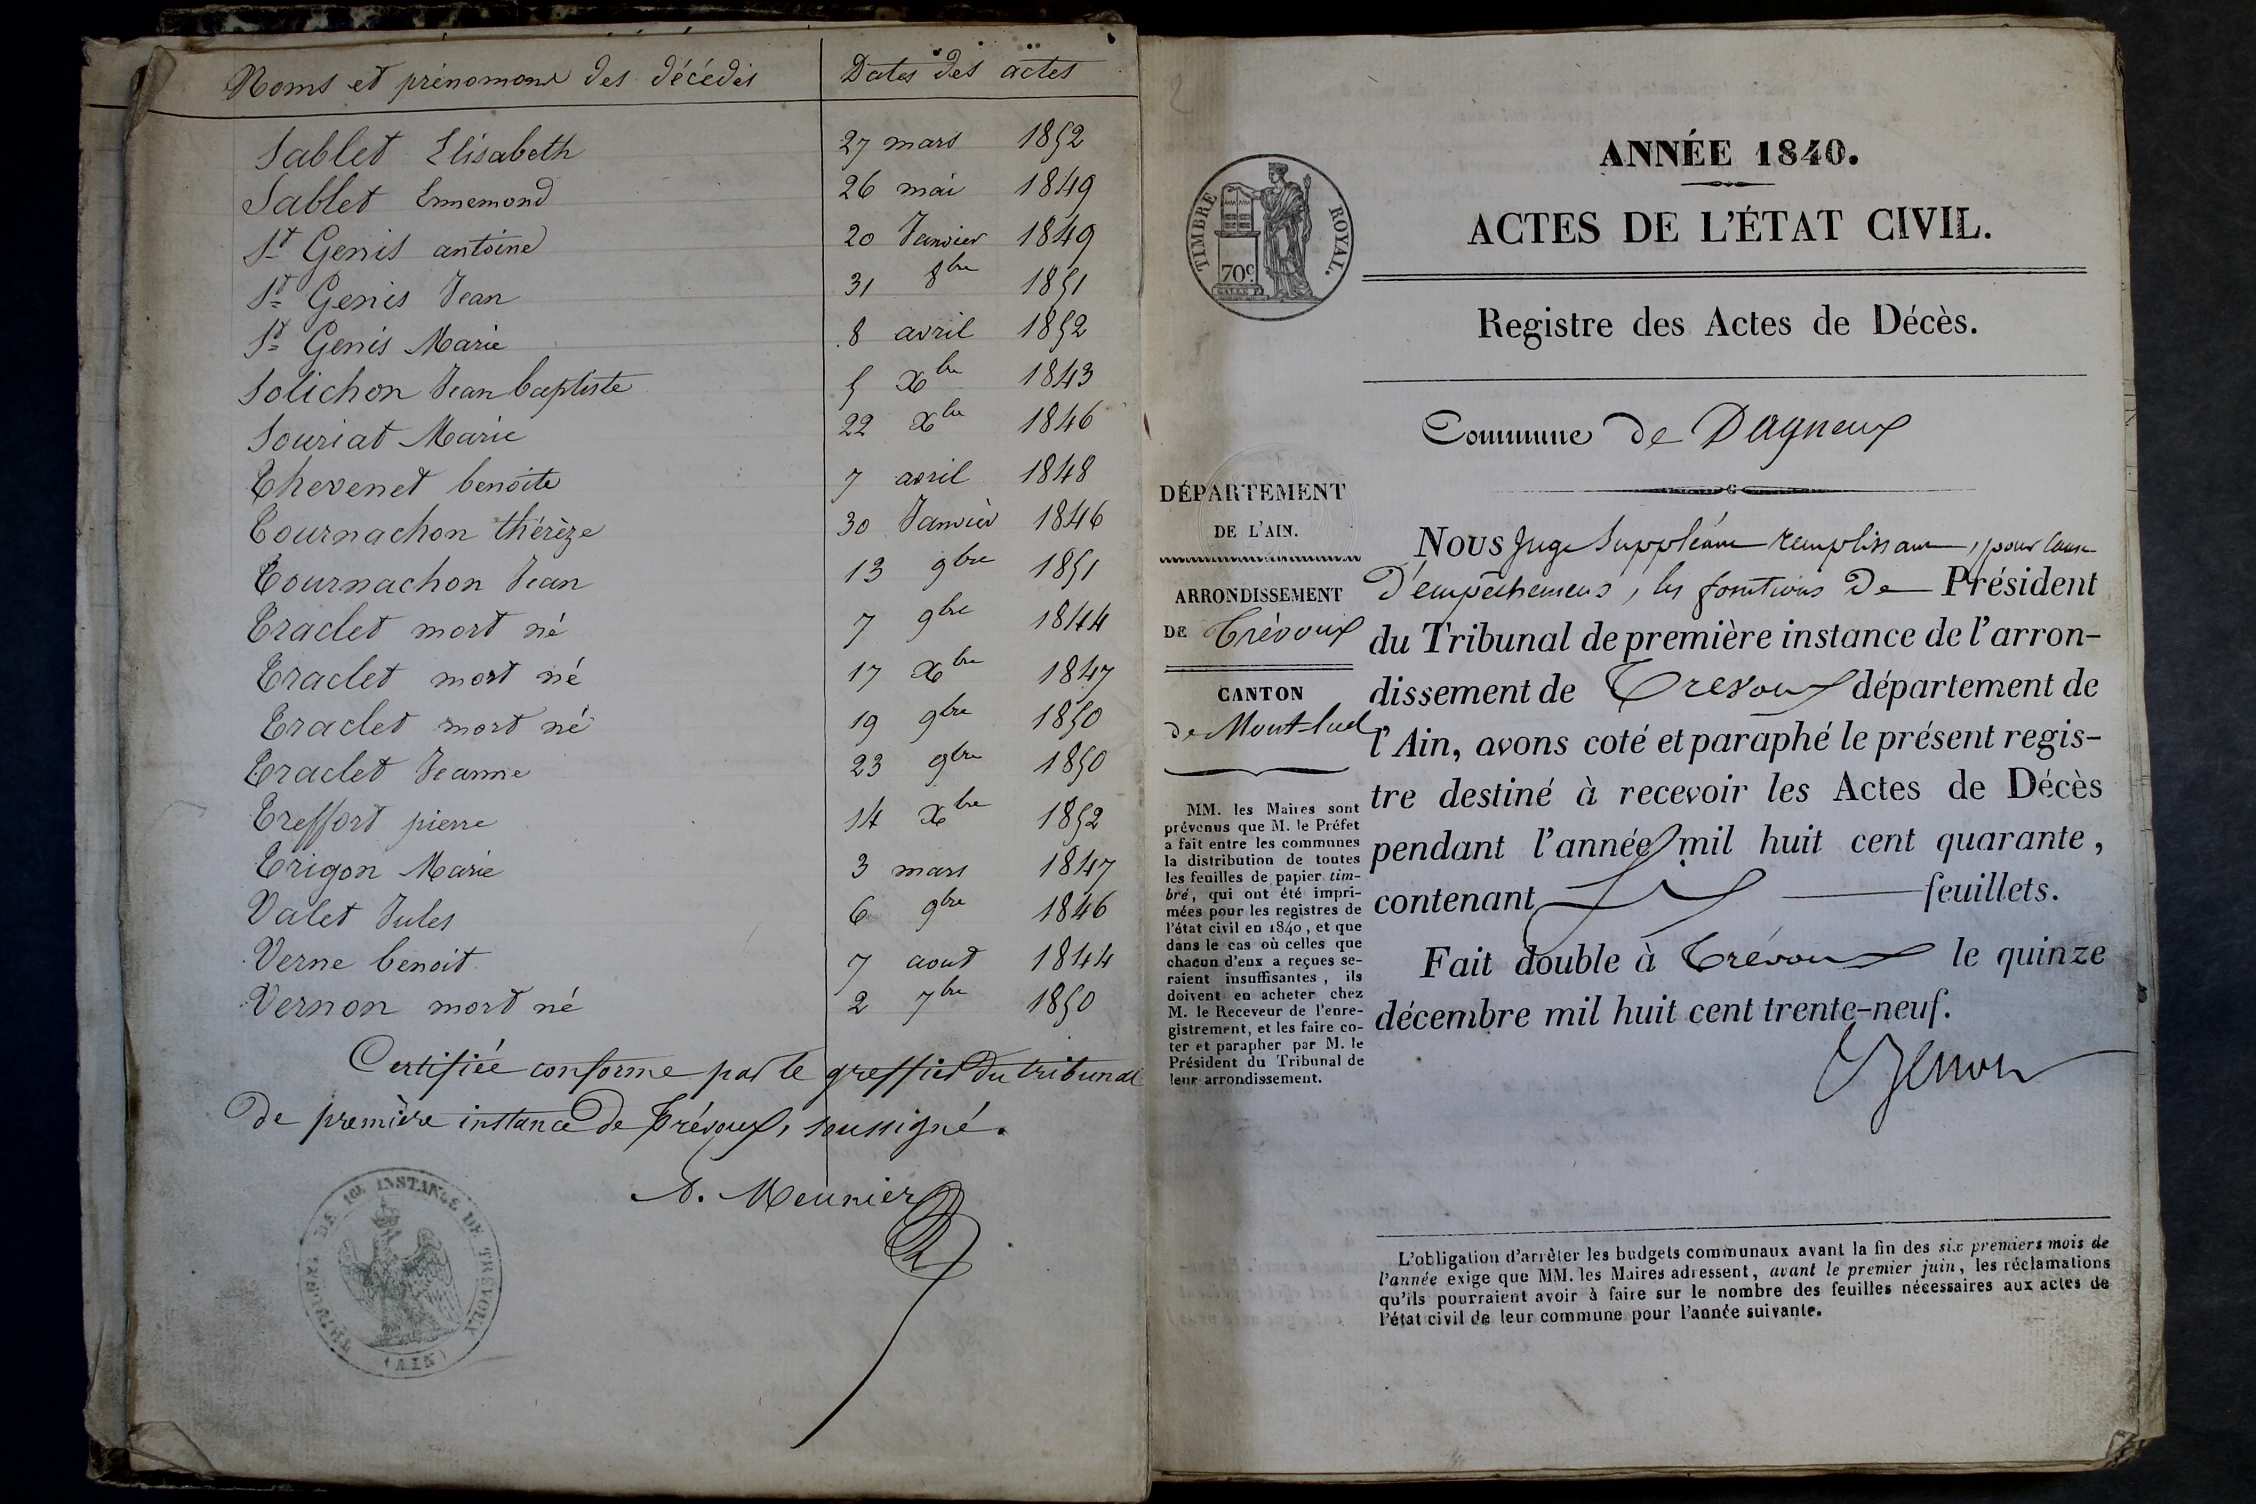 Noms et prénomons des décédés Dates des actes
Sablet Elisabeth 27 mars 1852
Sablet Ennemond 26 mai 1849
St Genis antoine 20 Janvier 1849
St Genis Jean 31 8bre 1851
St Genis Marie 8 avril 1852
Solichon Jean baptiste 5 Xbre 1843
Souriat Marie 22 Xbre 1846
Thevenet benoite 7 avril 1848
Tournachon thérèze 30 Janvier 1846
Tournachon Jean 13 9bre 1851
Traclet mort né 7 9bre 1844
Traclet mort né 17 Xbre 1847
Traclet mort né 19 9bre 1850
Traclet Jeanne 23 9bre 1850
Treffort pierre 14 Xbre 1852
Trigon Marie 3 mars 1847
Valet Jules 6 9bre 1846
Verne benoit 7 aout 1844
Vernon mort né 2 7bre 1850
Certifiée conforme par le greffier du tribunal
de première instance de Trévoux, soussigné.
A. Meunier
TRIBUNAL DE 1ere INSTANCE DE TRÉVOUX
(AIN)
2
TIMBRE ROYAL.
70c
ANNÉE 1840.
ACTES DE L'ÉTAT CIVIL.
Registre des Actes de Décès.
Commune de Dagneux
DÉPARTEMENT
DE L'AIN.
ARRONDISSEMENT
DE Trévoux
CANTON
de Montluel
MM. les Maires sont
prévenus que M. le Préfet
a fait entre les communes
la distribution de toutes
les feuilles de papier tim-
bré, qui ont été impri-
mées pour les registres de
l'état civil en 1840, et que
dans le cas où celles que
chacun d'eux a reçues se-
raient insuffisantes, ils
doivent en acheter chez
M. le Receveur de l'enre-
gistrement, et les faire co-
ter et parapher par M. le
Président du Tribunal de
leur arrondissement.
NOUS Juge Suppléant remplissant, pour cause
d'empêchement, les fonctions de Président
du Tribunal de première instance de l'arron-
dissement de Trévoux département de
l'Ain, avons coté et paraphé le présent regis-
tre destiné à recevoir les Actes de Décès
pendant l'année mil huit cent quarante,
contenant Six feuillets.
Fait double à Trévoux le quinze
décembre mil huit cent trente-neuf.
L'obligation d'arrêter les budgets communaux avant la fin des six premiers mois de
l'année exige que MM. les Maires adressent, avant le premier juin, les réclamations
qu'ils pourraient avoir à faire sur le nombre des feuilles nécessaires aux actes de
l'état civil de leur commune pour l'année suivante.